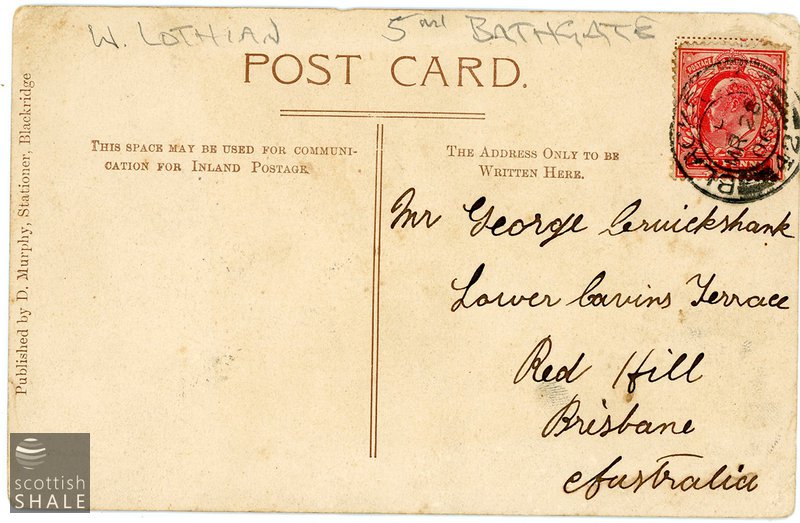 W. LOTHIAN 5ml BATHGATE
POST CARD.
THIS SPACE MAY BE USED FOR COMMUNI-
CATION FOR INLAND POSTAGE.
THE ADDRESS ONLY TO BE
WRITTEN HERE.
Mr George Cruickshank
Lower Cavins Terrace
Red Hill
Brisbane
Australia
Published by D. Murphy, Stationer, Blackridge
POSTAGE
scottish
SHALE